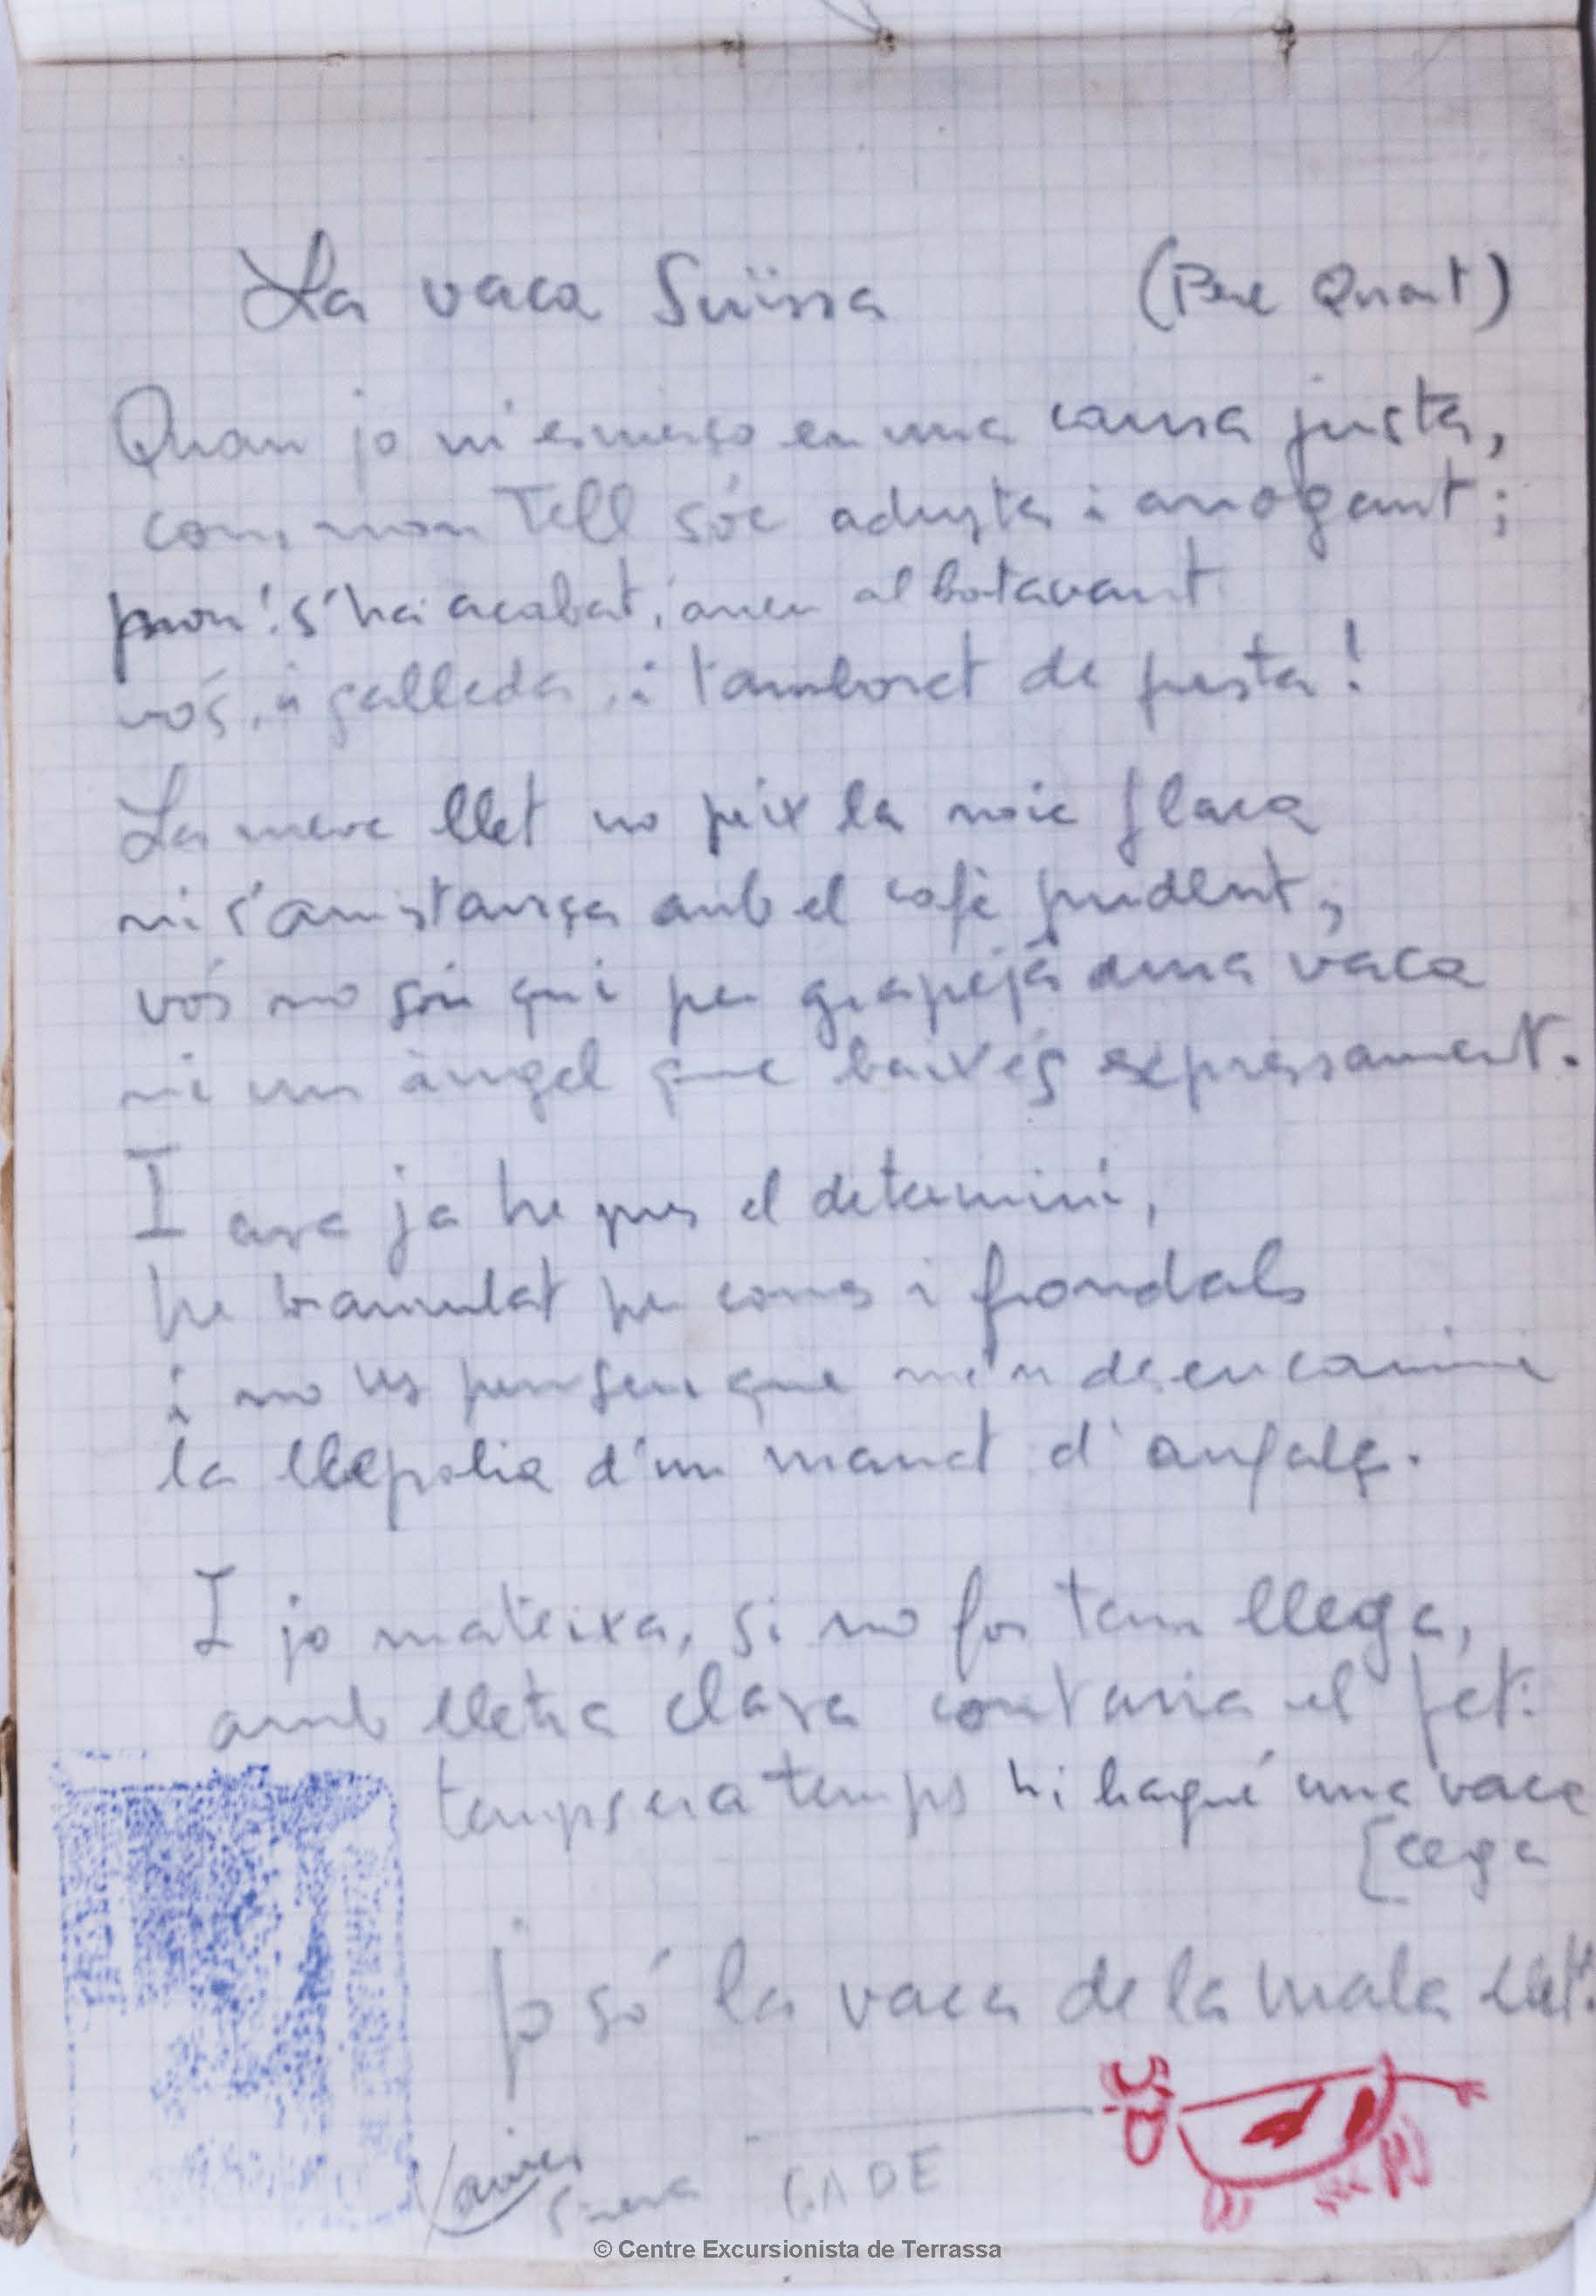 La vaca Suïssa (Pere Quart)
Quan jo m'esmerço en una causa justa,
com mon Tell sóc adusta i arrogant;
prou! s'ha acabat, aneu al botavant
vós, i galleda, i tamboret de fusta!
La meva llet no peix la noia flaca
ni s'amistança amb el cafè pudent,
vós no sou qui per grapejà una vaca
ni un àngel que baixés expressament.
I ara ja he pres el determini,
he bramulat per comes i fondals
i no us penseu que me'n desencamini
la llepolia d'un manat d'anfals.
I jo mateixa, si no fos tan llega,
amb lletra clara contaria el fet:
temps era temps hi hagué una vaca
[cega
jo só la vaca de la mala llet".
Xavier
GADE
© Centre Excursionista de Terrassa